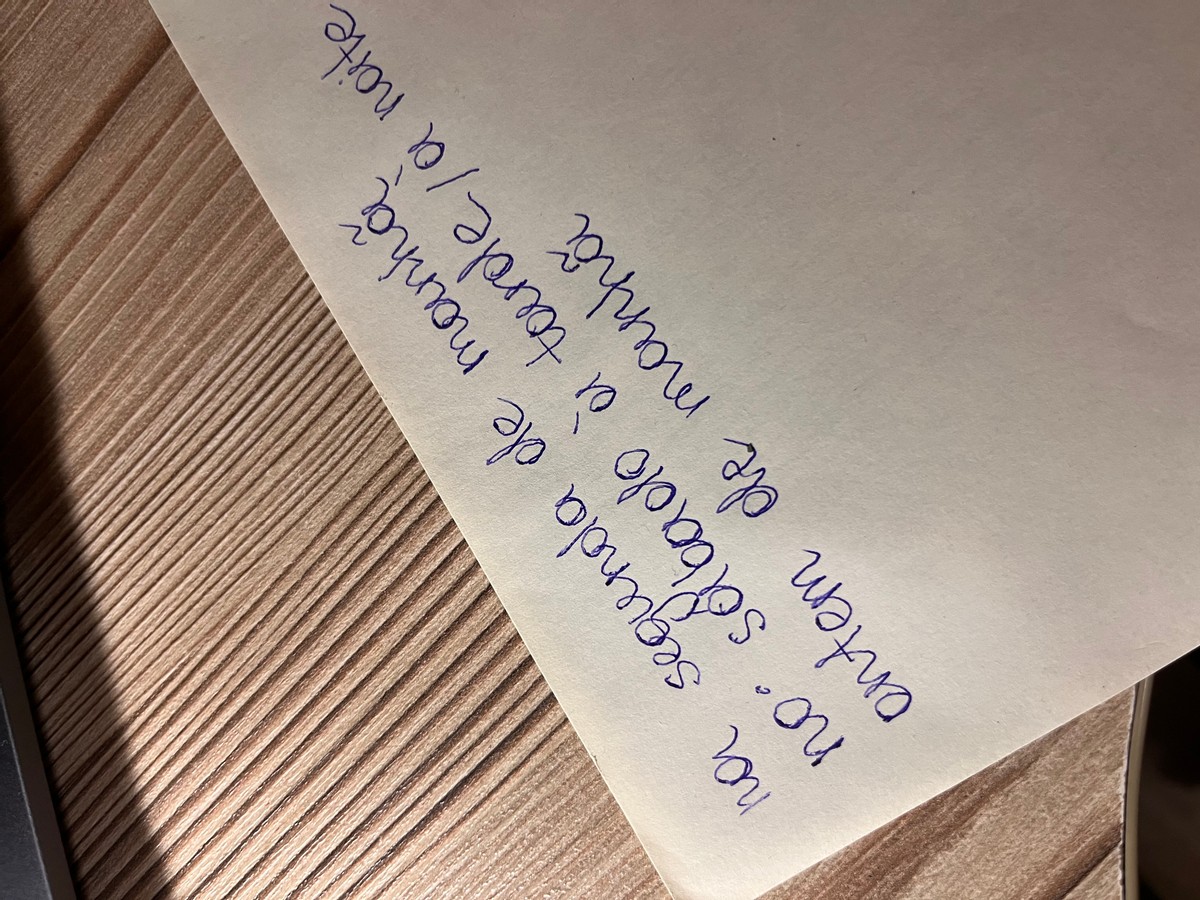 na segunda de manhã
no. sábado à tarde/à noite
ontem de manhã